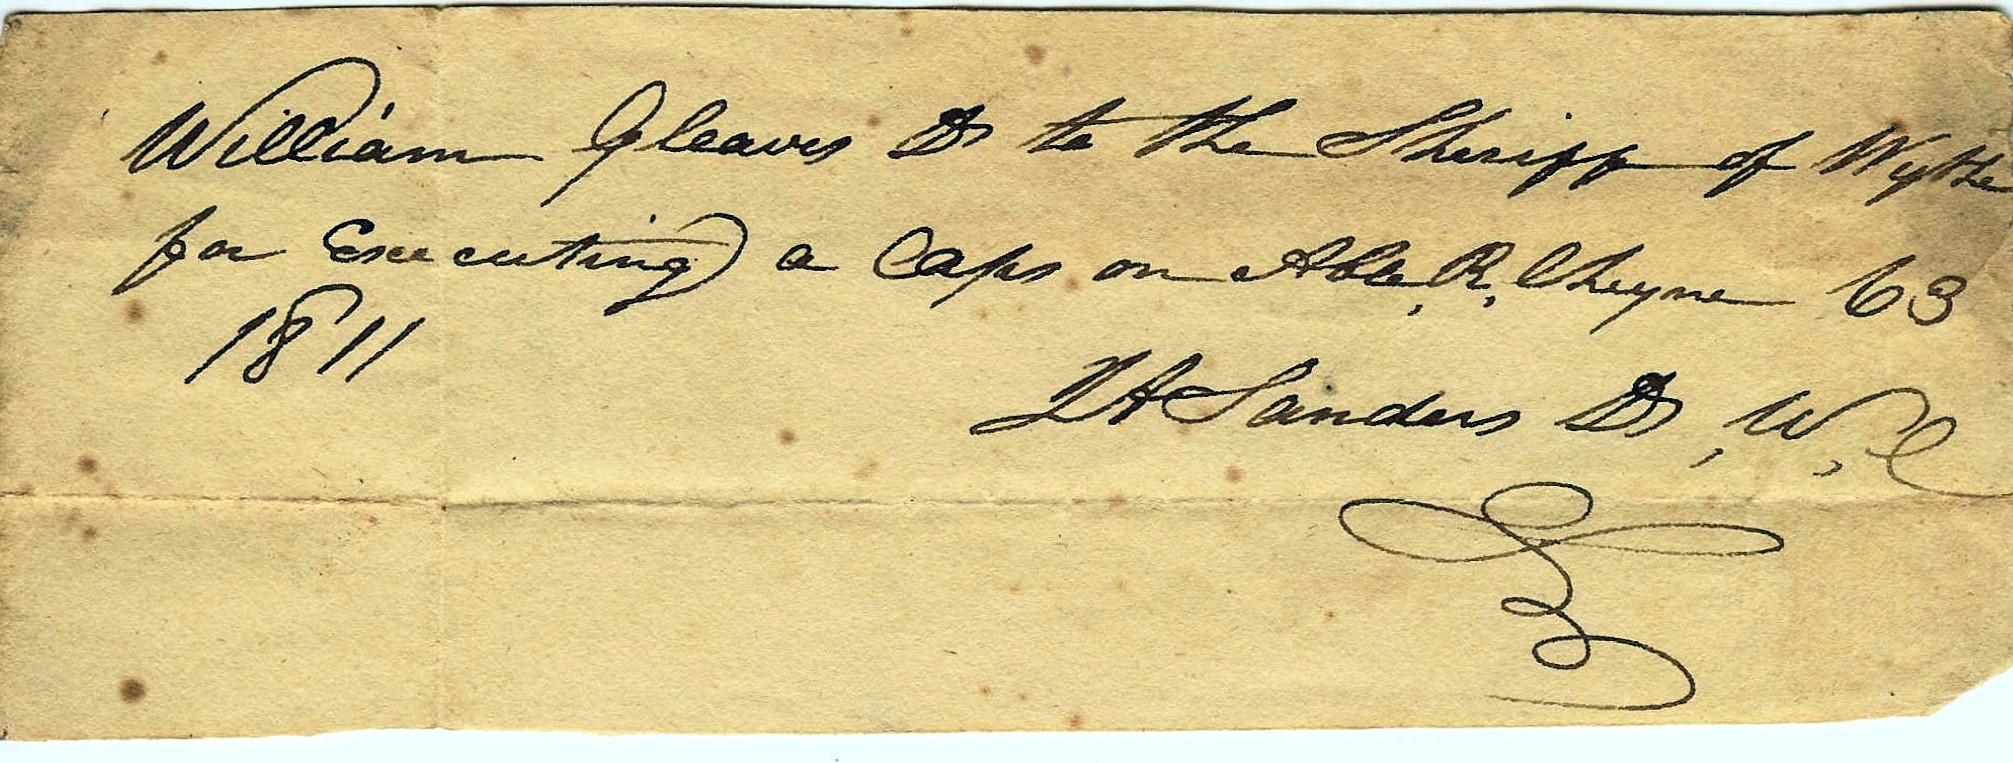 William Gleaves Dr to the Sheriff of Wythe
for Executing a Caps on Able, R, Cheyne 63
1811
Sanders DS, W, C